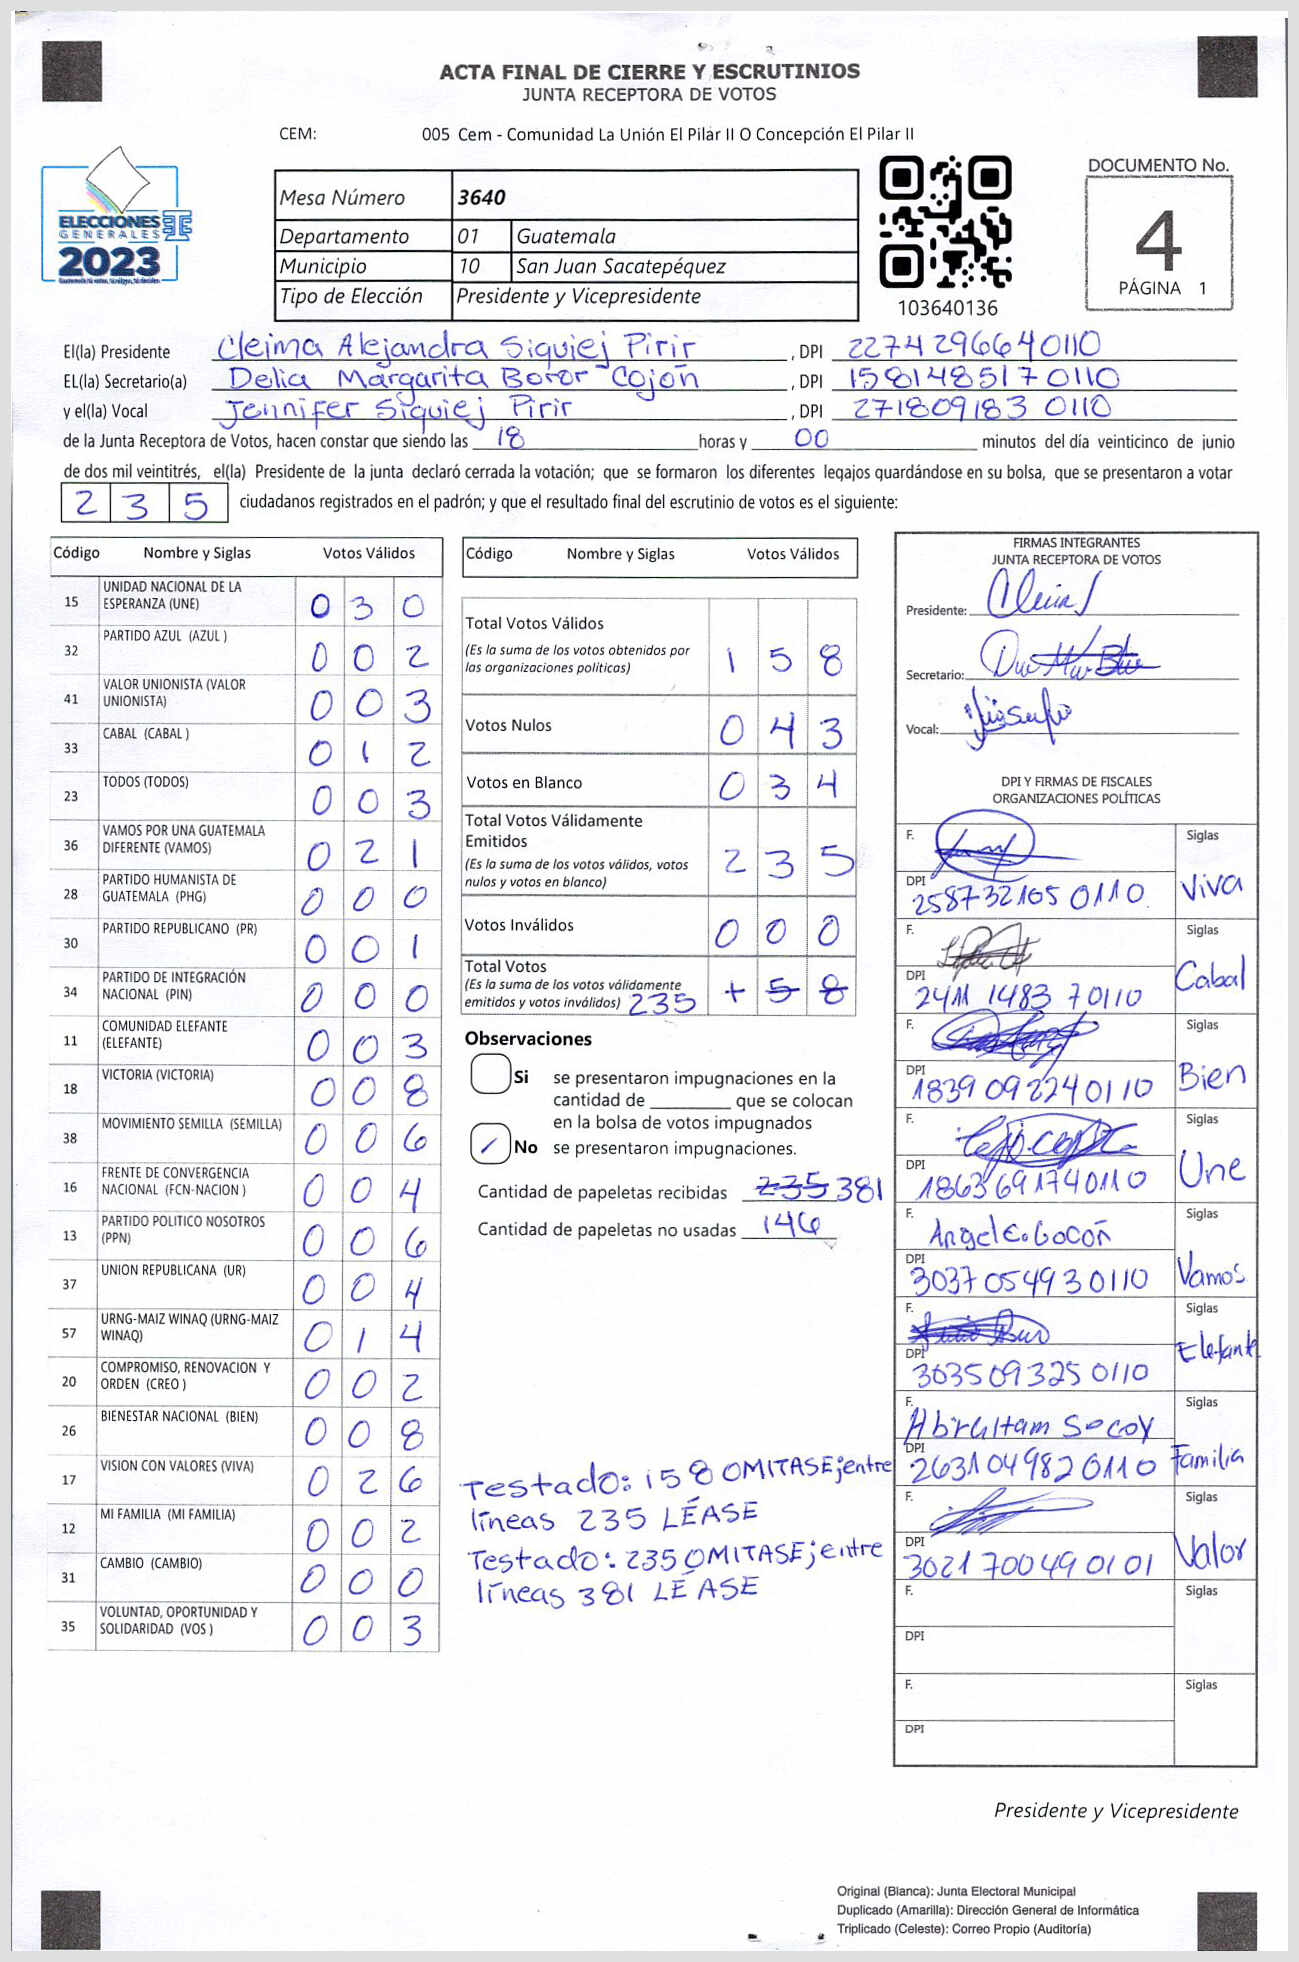 ACTA FINAL DE CIERRE Y ESCRUTINIOS
JUNTA RECEPTORA DE VOTOS
CEM: 005 Cem - Comunidad La Unión El Pilar II O Concepción El Pilar II
ELECCIONES
GENERALES
2023
Mesa Número 3640
Departamento 01 Guatemala
Municipio 10 San Juan Sacatepéquez
Tipo de Elección Presidente y Vicepresidente
103640136
DOCUMENTO No.
4
PÁGINA 1
El(la) Presidente Cleima Alejandra Siquiej Pirir , DPI 2274296640110
EL(la) Secretario(a) Delia Margarita Boror Cojon , DPI 1581485170110
y el(la) Vocal Jennifer Siquiej Pirir , DPI 271809183 0110
de la Junta Receptora de Votos, hacen constar que siendo las 18 horas y 00 minutos del día veinticinco de junio
de dos mil veintitrés, el(la) Presidente de la junta declaró cerrada la votación; que se formaron los diferentes legajos guardándose en su bolsa, que se presentaron a votar
2 3 5 ciudadanos registrados en el padrón; y que el resultado final del escrutinio de votos es el siguiente:
Código Nombre y Siglas Votos Válidos
15 UNIDAD NACIONAL DE LA
ESPERANZA (UNE) 0 3 0
32 PARTIDO AZUL (AZUL ) 0 0 2
41 VALOR UNIONISTA (VALOR
UNIONISTA) 0 0 3
33 CABAL (CABAL ) 0 1 2
23 TODOS (TODOS) 0 0 3
36 VAMOS POR UNA GUATEMALA
DIFERENTE (VAMOS) 0 2 1
28 PARTIDO HUMANISTA DE
GUATEMALA (PHG) 0 0 0
30 PARTIDO REPUBLICANO (PR) 0 0 1
34 PARTIDO DE INTEGRACIÓN
NACIONAL (PIN) 0 0 0
11 COMUNIDAD ELEFANTE
(ELEFANTE) 0 0 3
18 VICTORIA (VICTORIA) 0 0 8
38 MOVIMIENTO SEMILLA (SEMILLA) 0 0 6
16 FRENTE DE CONVERGENCIA
NACIONAL (FCN-NACION ) 0 0 4
13 PARTIDO POLITICO NOSOTROS
(PPN) 0 0 6
37 UNION REPUBLICANA (UR) 0 0 4
57 URNG-MAIZ WINAQ (URNG-MAIZ
WINAQ) 0 1 4
20 COMPROMISO, RENOVACION Y
ORDEN (CREO ) 0 0 2
26 BIENESTAR NACIONAL (BIEN) 0 0 8
17 VISION CON VALORES (VIVA) 0 2 6
12 MI FAMILIA (MI FAMILIA) 0 0 2
31 CAMBIO (CAMBIO) 0 0 0
35 VOLUNTAD, OPORTUNIDAD Y
SOLIDARIDAD (VOS ) 0 0 3
Código Nombre y Siglas Votos Válidos
Total Votos Válidos
(Es la suma de los votos obtenidos por
las organizaciones políticas) 1 5 8
Votos Nulos 0 4 3
Votos en Blanco 0 3 4
Total Votos Válidamente
Emitidos
(Es la suma de los votos válidos, votos
nulos y votos en blanco) 2 3 5
Votos Inválidos 0 0 0
Total Votos
(Es la suma de los votos válidamente
emitidos y votos inválidos) 235 1 5 8
Observaciones
Si se presentaron impugnaciones en la
cantidad de ________ que se colocan
en la bolsa de votos impugnados
No se presentaron impugnaciones.
Cantidad de papeletas recibidas 235 381
Cantidad de papeletas no usadas 146
Testado: 158 OMITASE; entre
líneas 235 LÉASE
Testado: 235 OMITASE; entre
líneas 381 LÉASE
FIRMAS INTEGRANTES
JUNTA RECEPTORA DE VOTOS
Presidente:
Secretario:
Vocal:
DPI Y FIRMAS DE FISCALES
ORGANIZACIONES POLÍTICAS
F. Siglas
DPI 258732105 0110 Viva
F. Siglas
DPI 2411 1483 70110 Cabal
F. Siglas
DPI 1839 092240110 Bien
F. Siglas
DPI 1863691740110 Une
F. Angel E. Cocon Siglas
DPI 3037 054930110 Vamos
F. Siglas
DPI 3035093250110 Elefante
F. Abraham Socoy Siglas
DPI 2631049820110 Familia
F. Siglas
DPI 3021700490101 Valor
F. Siglas
DPI
F. Siglas
DPI
Presidente y Vicepresidente
Original (Blanca): Junta Electoral Municipal
Duplicado (Amarilla): Dirección General de Informática
Triplicado (Celeste): Correo Propio (Auditoría)